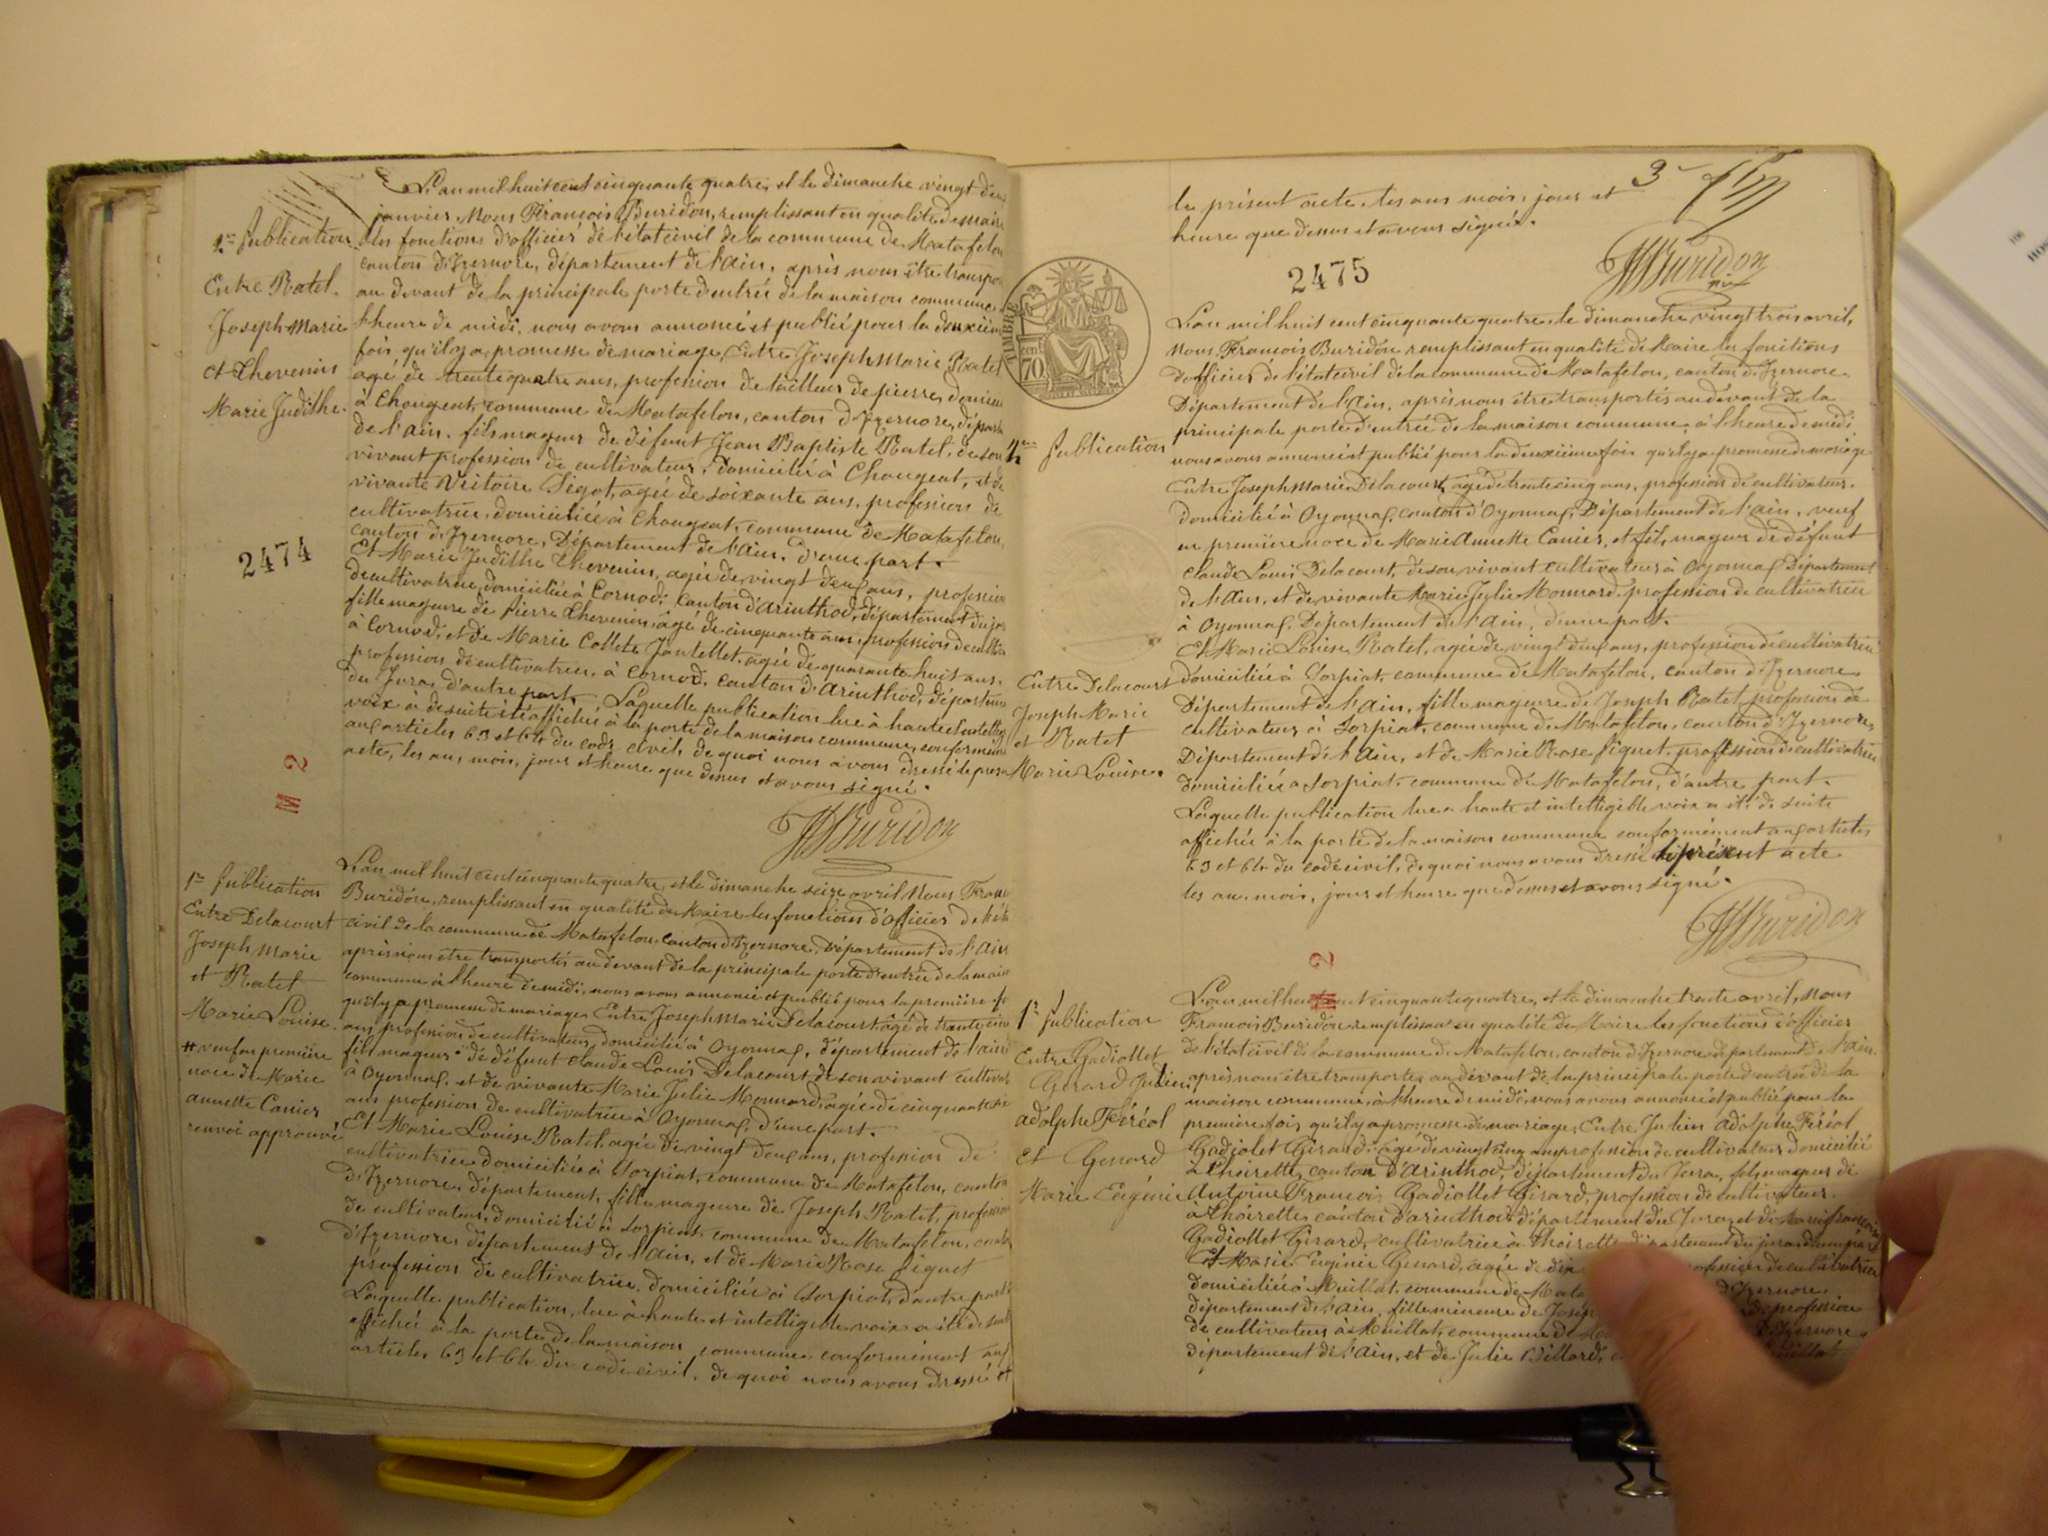 L'an mil huit cent cinquante quatre, et le dimanche vingt deux
janvier Nous François Buridon, remplissant en qualité de maire
les fonctions d'officier de l'état civil de la commune de Matafelon
canton d'Izernore, département de l'ain, après nous être transporté
au devant de la principale porte d'entrée de la maison commune à
l'heure de midi, nous avons annoncé et publié pour la deuxième
fois, qu'il y a promesse de mariage, Entre Joseph Marie Ratel
agé de trente quatre ans, profession de tailleur de pierre, domicilié
à Chougeat, commune de Matafelon, canton d'Izernore, départ
de l'ain, fils majeur de défunt Jean Baptiste Ratel, de son
vivant profession de cultivateur, domicilié à Chougeat, et de
vivante Victoire agée de soixante ans, profession de
cultivatrice, domiciliée à Chougeat, commune de Matafelon,
canton d'Izernore, Département de l'ain, d'une part.
Et Marie Judithe Thevenin, agée de vingt deux ans, profession
de cultivatrice, domiciliée à Cornod, canton d'arinthod, département du jura
fille majeure de pierre Thevenin, agé de cinquante ans, profession de cultiv
à Cornod, et de Marie Collete agée de quarante huit ans,
profession de cultivatrice, à Cornod, canton d'arinthod, départem
du Jura, d'autre part. Laquelle publication lue à haute et intelligi
voix a de suite été affichée à la porte de la maison commune, conformém
aux articles 63 et 64 du code civil, de quoi nous avons dressé le présent
acte, les an, mois, jour et heure que dessus et avons signé.
FBuridon
2me publication
Entre Ratel
Joseph Marie
et Thevenin
Marie Judithe.
2474
M 2
1re publication
Entre Delacourt
Joseph Marie
et Ratel
Marie Louise.
# veuf en première
noce de Marie
annette Canier
renvoi approuvé
L'an mil huit cent cinquante quatre, et le dimanche seize avril Nous Franç
Buridon, remplissant en qualité de Maire les fonctions d'officier de l'éta
civil de la commune de Matafelon, canton d'Izernore, département de l'ain
après nous être transportés au devant de la principale porte d'entrée de la mais
commune à l'heure de midi, nous avons annoncé et publié pour la première fo
qu'il y a promesse de mariage, Entre Joseph Marie Delacourt agé de trente cinq
ans, profession de cultivateur, domicilié à Oyonnax, département de l'ain #
fils majeur de défunt Claude Louis Delacourt de son vivant cultivat
à Oyonnax, et de vivante Marie Julie Monnard, agée de cinquante
ans profession de cultivatrice à Oyonnax, d'une part.
Et Marie Louise Ratel, agée de vingt deux ans, profession de
cultivatrice domiciliée à Corpiat, commune de Matafelon, canton
d'Izernore, département, fille majeure de Joseph Ratel, profession
de cultivateur, domicilié à Corpiat, commune de Matafelon, canton
d'Izernore, département de l'ain, et de Marie Rose Piquet
profession de cultivatrice, domiciliée à Corpiat, d'autre part
Laquelle publication, lue à haute et intelligible voix a été de suite
affiché à la porte de la maison commune, conformément aux
articles 63 et 64 du code civil, de quoi nous avons dressé et
3
le présent acte les ans mois, jour et
heure que dessus et avons signés.
FBuridon
2475
TIMBRE
70
2me publication
Entre Delacourt
Joseph Marie
et Ratel
Marie Louise.
L'an mil huit cent cinquante quatre, le dimanche vingt trois avril,
Nous François Buridon remplissant en qualité de Maire les fonctions
d'officier de l'état civil de la commune de Matafelon, canton d'Izernore,
Département de l'ain, après nous être transportés au devant de la
principale porte d'entrée de la maison commune, à l'heure de midi
nous avons annoncé et publié pour la deuxième fois qu'il y a promesse de mariage
Entre Joseph Marie Delacourt, agé de trente cinq ans, profession de cultivateur,
domicilié à Oyonnax, canton d'Oyonnax, Département de l'ain, veuf
en première noce de Marie Annette Canier, et fils majeur de défunt
Claude Louis Delacourt, de son vivant cultivateur à Oyonnax Département
de l'ain, et de vivante Marie Julie Monnard, profession de cultivatrice
à Oyonnax, Département de l'ain, d'une part.
Et Marie Louise Ratel, agée de vingt deux ans, profession de cultivatrice
domiciliée à Corpiat, commune de Matafelon, canton d'Izernore
Département de l'ain, fille majeure de Joseph Ratel, profession de
cultivateur à Corpiat, commune de Matafelon, canton d'Izernore,
Département de l'ain, et de Marie Rose Piquet, profession de cultivatrice
domiciliée à Corpiat, commune de Matafelon, d'autre part.
Laquelle publication lue a haute et intelligible voix a été de suite
affichée à la porte de la maison commune conformément aux articles
63 et 64 du code civil, de quoi nous avons dressé le présent acte
les an, mois, jour et heure que dessus et avons signé.
FBuridon
M 2
1re publication
Entre Gadiollet
Girard Julien
adolphe Féréol
et Genard
Marie Eugénie
L'an mil huit cent cinquante quatre, et le dimanche trente avril, Nous
François Buridon remplissant en qualité de Maire les fonctions d'officier
de l'état civil de la commune de Matafelon, canton d'Izernore département de l'ain
après nous être transportés au devant de la principale porte d'entrée de la
maison commune, à l'heure de midi, nous avons annoncé et publié pour la
première fois qu'il y a promesse de mariage, Entre Julien Adolphe Féréol
Gadiolet Girard, agé de vingt cinq ans profession de cultivateur domicilié
à Thoirette, canton d'Arinthod, département du Jura, fils majeur de
Antoine François Gadiollet Girard, profession de cultivateur
à Thoirette, canton d'arinthod département du Jura, et de Marie françoise
Gadiollet Girard, cultivatrice à Thoirette, département du jura, d'une part
Et Marie Eugénie Genard, agée de dix profession de cultivatrice
domiciliée à Meillat, commune de Mata d'Izernore,
département de l'ain, fille mineure de Joseph profession
de cultivateur à Meillat, commune de d'Izernore,
département de l'ain, et de Julie Billard,